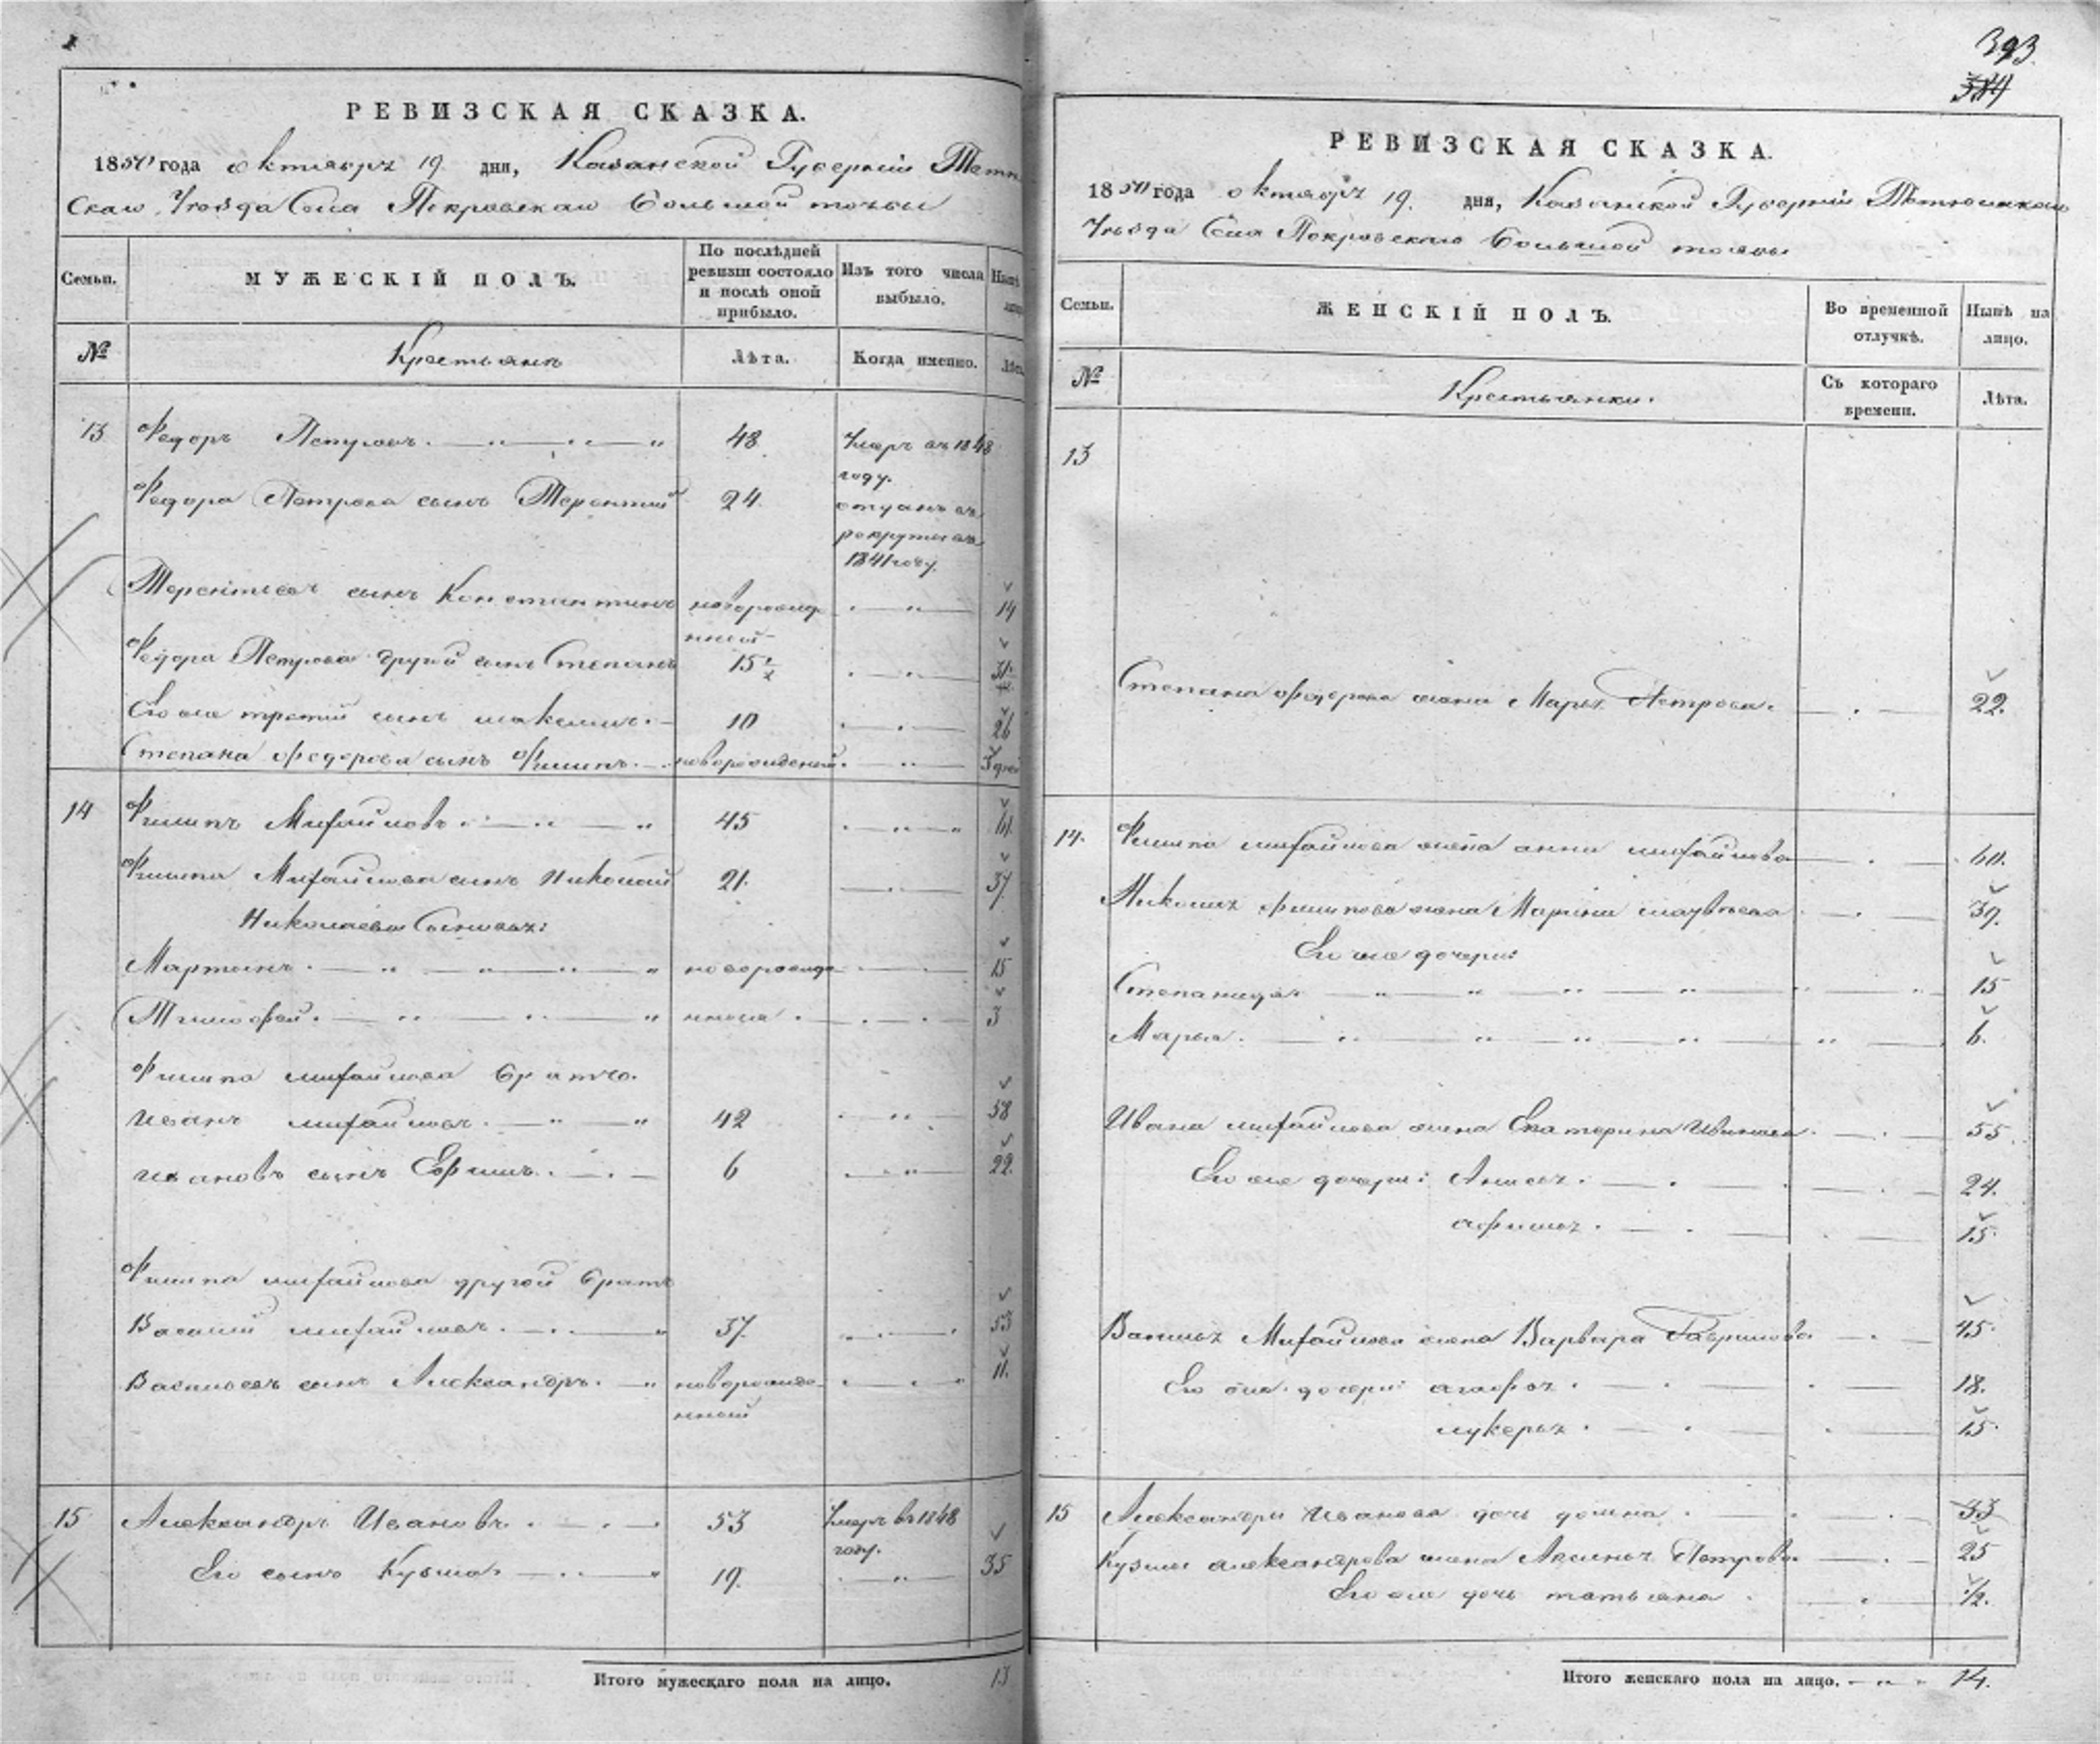 РЕВИЗСКАЯ СКАЗКА.
1850 года октября 19 дня, Казанской Губернiи Тетю
скаго Уезда Села Покровскаго Большой тожъ
Семьи.
МУЖЕСКІЙ ПОЛЪ.
По послѣдней ревизіи состояло и послѣ оной прибыло.
Изъ того числа выбыло.
Нынѣ
№
Крестьяне
Лѣта.
Когда именно.
Лѣта
13
Федоръ Петровъ. 48 Умеръ въ 1848
году.
Федора Петрова сынъ Терентий 24. отданъ въ
рекруты въ
1841 году.
Терентьевъ сынъ Константинъ новорожде 14
нный
Федора Петрова другой сынъ Степанъ 15 1/2 31 1/2
Его же третий сынъ Максимъ. 10 26
Степана Федорова сынъ Филипъ. новорожденый. дней
14 Филипъ Михайловъ 45 61
Филипа Михайлова сынъ Николай 21. 37
Николаевы Сыновья:
Мартынъ. новорожде 15
Тимофей. нные. 3
Филипа михайлова братъ.
Иванъ михайловъ. 42 58
Ивановъ сынъ Ефимъ. 6 22.
Филипа михайлова другой братъ
Василий михайловъ. 37. 53
Васильевъ сынъ Александръ. новорожде 11.
нный
15 Александръ Ивановъ. 53 Умеръ въ 1848
году.
Его сынъ Кузьма. 19. 35
Итого мужескаго пола на лицо. 13
393
384
РЕВИЗСКАЯ СКАЗКА.
1850 года октября 19. дня, Казанской Губернiи Тетюшскаго
Уезда Села Покровскаго Большой тожъ
Семьи.
ЖЕНСКІЙ ПОЛЪ.
Во временной отлучкѣ.
Нынѣ на лицо.
№
Крестьянки.
Съ котораго времени.
Лѣта.
13
Степана Федорова жена Марья Петрова. 22.
14. Филипа михайлова жена анна михайлова 60.
Николая филипова жена Марина матвѣева 39.
Его же дочери:
Степанида. 15
Марья. 6.
Ивана михайлова жена Екатерина Иванова. 55.
Его же дочери: Анисья. 24.
афимья. 15.
Василья Михайлова жена Варвара Гаврилова 45.
Его же дочери: агафья. 18.
лукерья. 15.
15 Александра Иванова дочь домна. 33
Кузьмы александрова жена Аксинья Петрова. 25
Его же дочь татьяна. 1/2.
Итого женскаго пола на лицо. 14.